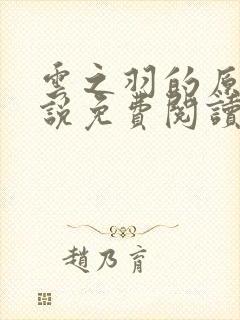 雲之羽的原
說免費閱讀
趙乃育